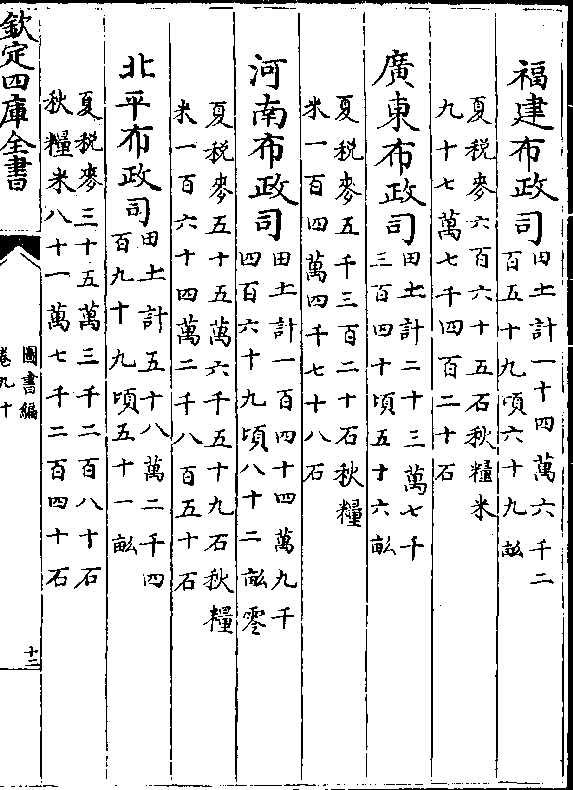 福建布政司田土計一十四萬六千二
百五十九頃六十九畝
夏税麥六百六十五石秋糧米
九十七萬七千四百二十石
廣東布政司田土計二十三萬七千
三百四十頃五十六畝
夏税麥五千三百二十石秋糧
米一百四萬四千七十八石
河南布政司田土計一百四十四萬九千
四百六十九頃八十二畝零
夏税麥五十五萬六千五十九石秋糧
米一百六十四萬二千八百五十石
北平布政司田土計五十八萬二千四
百九十九頃五十一畝
夏税麥三十五萬三千二百八十石
秋糧米八十一萬七千二百四十石
欽定四庫全書
圖書編
卷九十
十二